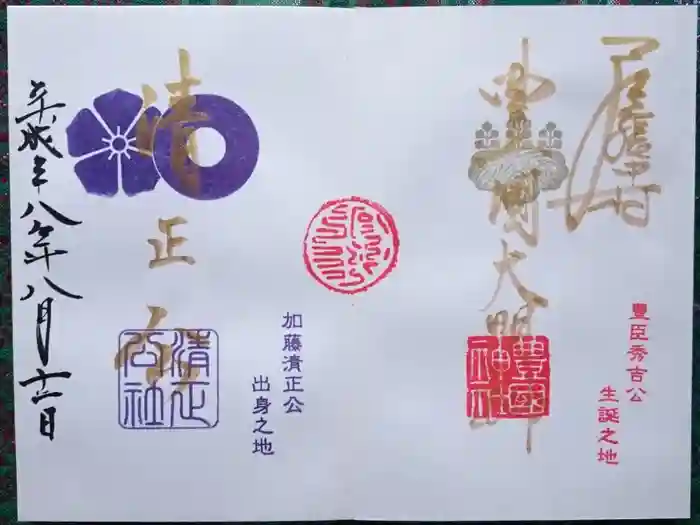 豊國大明神
豊國神社
豊臣秀吉公
生誕之地
清正公
清正公社
加藤清正公
出身之地
平成廿八年八月日